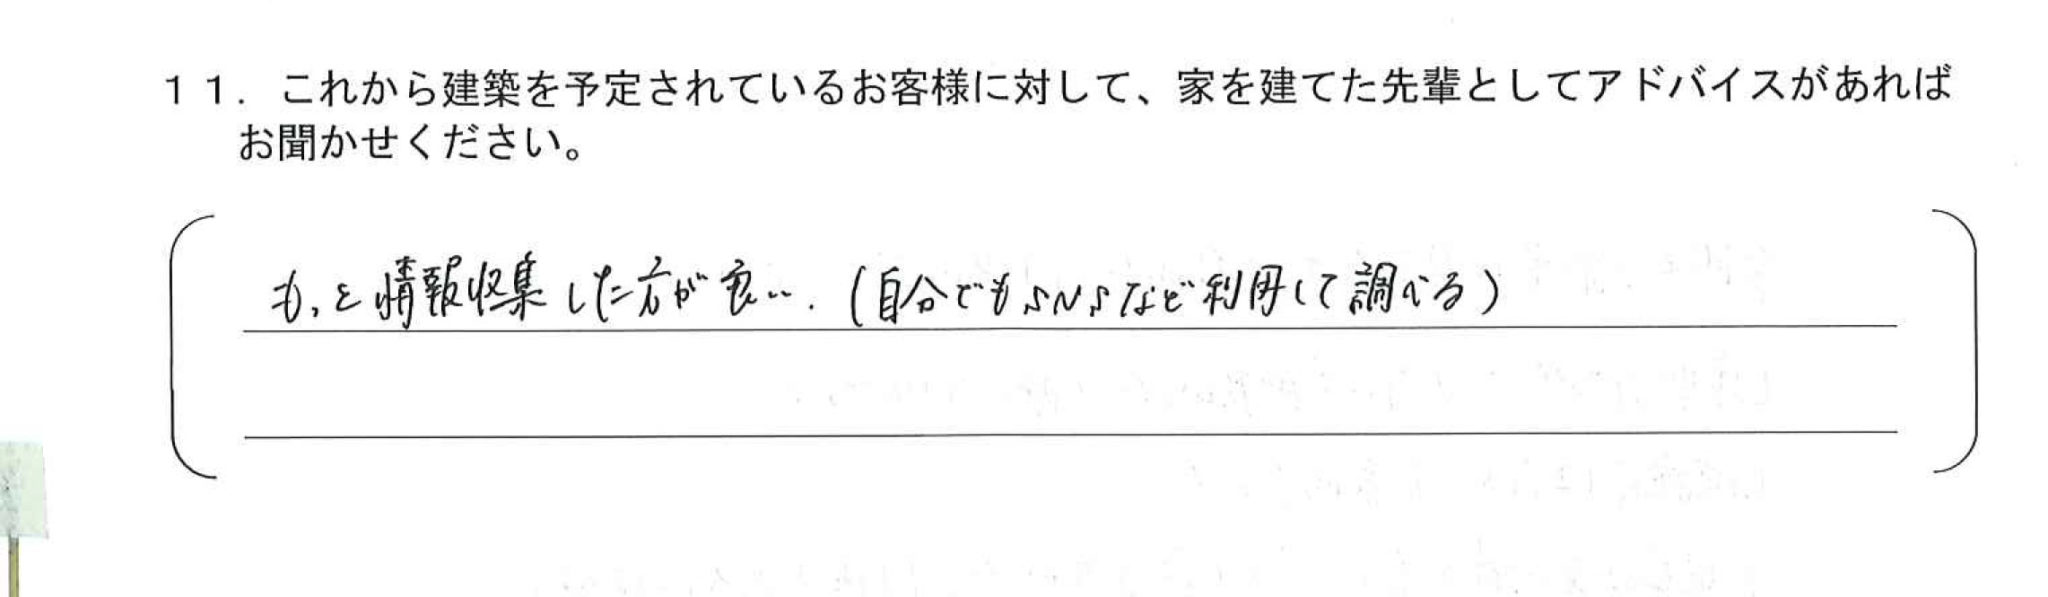 １１．これから建築を予定されているお客様に対して、家を建てた先輩としてアドバイスがあれば
お聞かせください。
もっと情報収集した方が良い．（自分でもSNSなど利用して調べる）